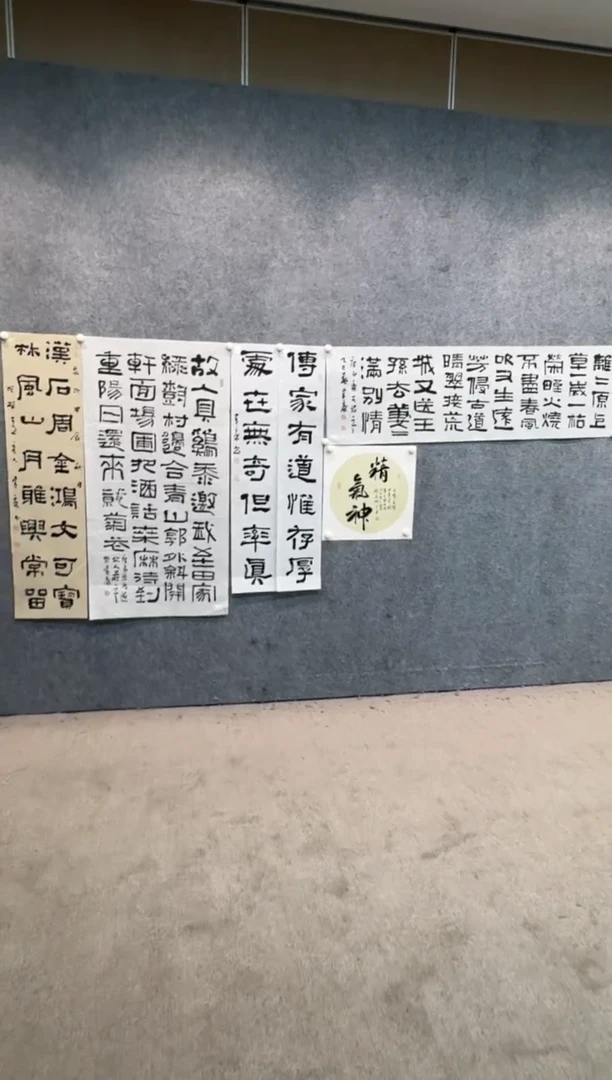 離二原上
草歲一枯
榮野火燒
不盡春風
吹又生遠
芳侵古道
晴翠接荒
城又送王
孫去萋二
滿別情
精
氣
神
傳家有道惟存厚
處世無奇但率真
故人具鷄黍邀我至田家
綠樹村邊合青山郭外斜開
軒面場圃把酒話桑麻待到
重陽日還來就菊花
漢石周金鴻文可寶
林風山月雅興常留